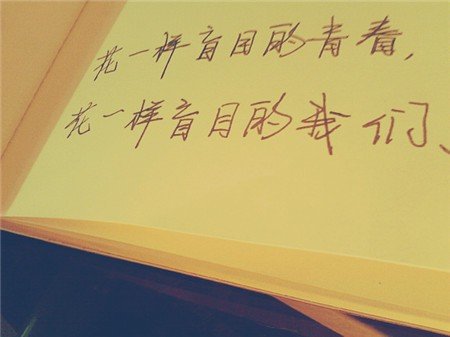 花一样盲目的青春,
花一样盲目的我们、